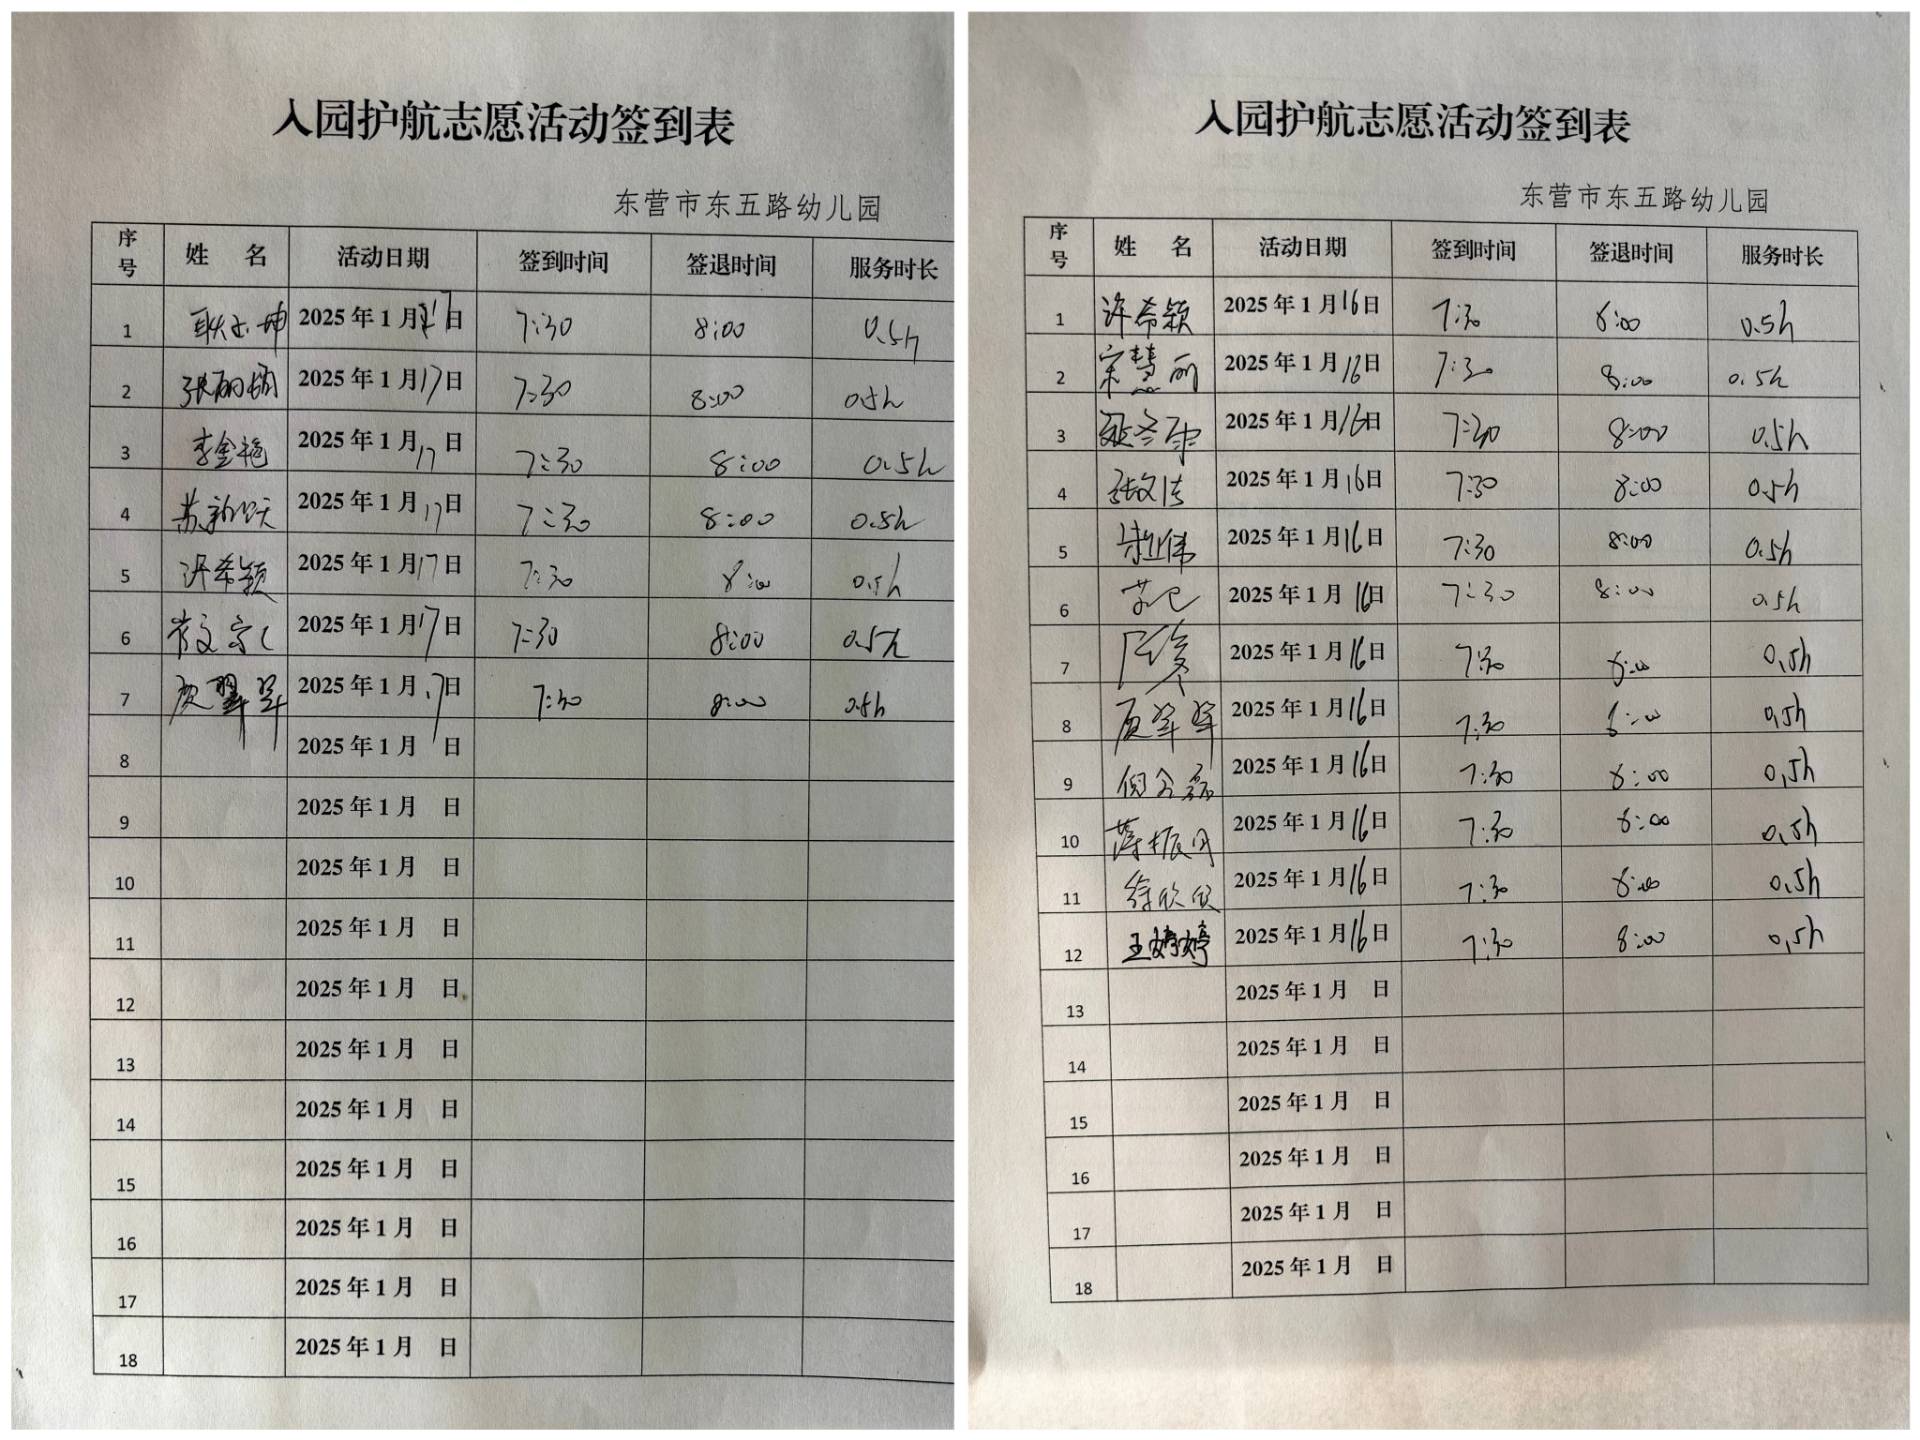 入园护航志愿活动签到表
东营市东五路幼儿园
序号 姓 名 活动日期 签到时间 签退时间 服务时长
1 2025年1月17日 7:30 8:00 0.5h
2 张丽娟 2025年1月17日 7:30 8:00 0.5h
3 李金艳 2025年1月17日 7:30 8:00 0.5h
4 苏新 2025年1月17日 7:30 8:00 0.5h
5 许希颖 2025年1月17日 7:30 8:00 0.5h
6 2025年1月17日 7:30 8:00 0.5h
7 翠翠 2025年1月17日 7:30 8:00 0.5h
8 2025年1月 日
9 2025年1月 日
10 2025年1月 日
11 2025年1月 日
12 2025年1月 日
13 2025年1月 日
14 2025年1月 日
15 2025年1月 日
16 2025年1月 日
17 2025年1月 日
18 2025年1月 日
入园护航志愿活动签到表
东营市东五路幼儿园
序号 姓 名 活动日期 签到时间 签退时间 服务时长
1 许希颖 2025年1月16日 7:30 8:00 0.5h
2 宋慧丽 2025年1月16日 7:30 8:00 0.5h
3 2025年1月16日 7:30 8:00 0.5h
4 张文洁 2025年1月16日 7:30 8:00 0.5h
5 2025年1月16日 7:30 8:00 0.5h
6 2025年1月16日 7:30 8:00 0.5h
7 2025年1月16日 7:30 8:00 0.5h
8 翠翠 2025年1月16日 7:30 8:00 0.5h
9 倪 2025年1月16日 7:30 8:00 0.5h
10 薄振同 2025年1月16日 7:30 8:00 0.5h
11 徐欣欣 2025年1月16日 7:30 8:00 0.5h
12 王婷婷 2025年1月16日 7:30 8:00 0.5h
13 2025年1月 日
14 2025年1月 日
15 2025年1月 日
16 2025年1月 日
17 2025年1月 日
18 2025年1月 日